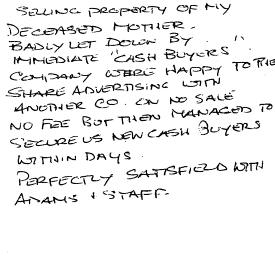 SELLING PROPERTY OF MY
DECEASED MOTHER.
BADLY LET DOWN BY . "
IMMEDIATE "CASH BUYERS".
COMPANY WERE HAPPY TO THE
SHARE ADVERTISING WITH
ANOTHER CO. ON NO SALE
NO FEE BUT THEN MANAGED TO
SECURE US NEW CASH BUYERS
WITHIN DAYS.
PERFECTLY SATISFIELD WITH
ADAMS + STAFF.